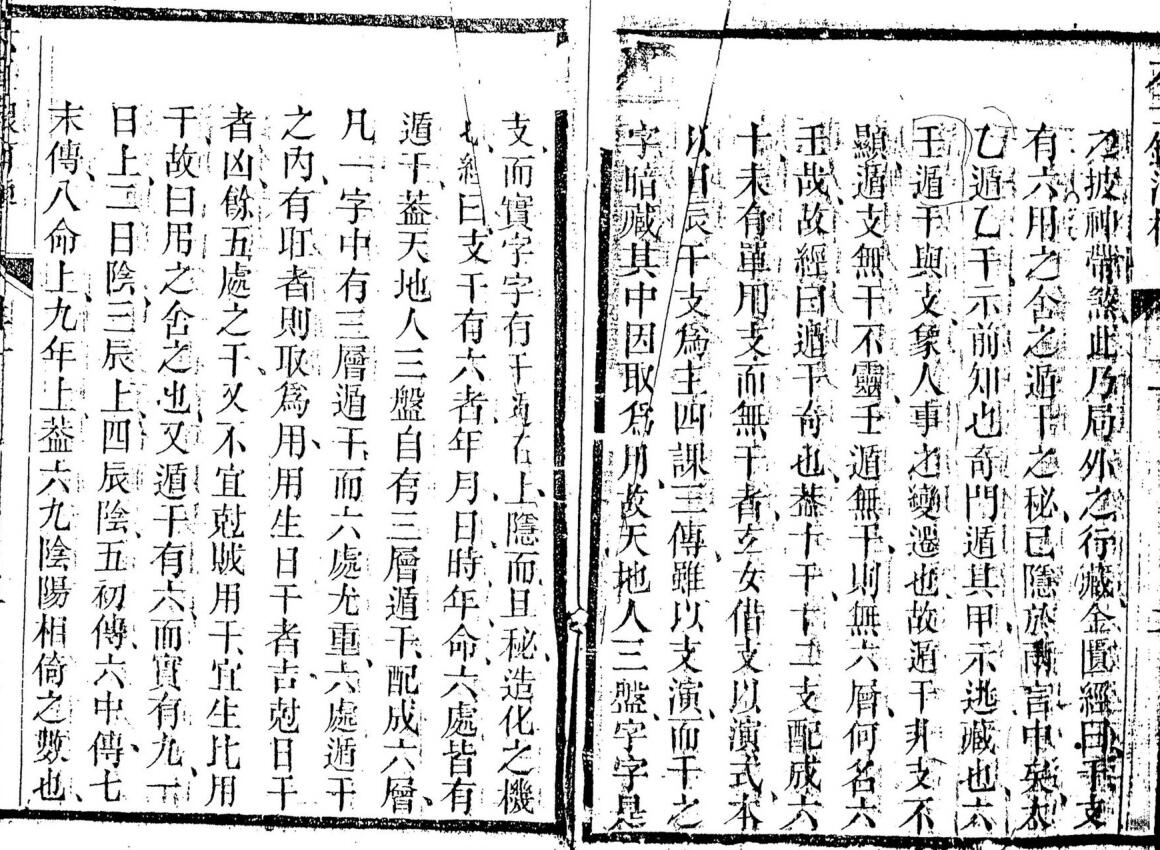 之披神帶煞此乃局外之行藏金匱經曰干支
有六用之舍之遁干之秘已隱於兩言中矣太
乙遁乙干示前知也奇門遁其甲示逃藏也六
壬遁干與支象人事之變遷也故遁干非支不
顯遁支無干不靈壬遁無干則無六層何名六
壬哉故經曰遁干奇也葢十干十二支配成六
十未有單用支而無干者玄女借支以演式本
以日辰干支爲主四課三傳雖以支演而干之
字暗藏其中因取爲用故天地人三盤字字是
支而實字字有干遁在上隱而且秘造化之機
也經曰支干有六者年月日時年命六處皆有
遁干葢天地人三盤自有三層遁干配成六層
凡一字中有三層遁干而六處尤重六處遁干
之內有可取者則取爲用用生日干者吉尅日干
者凶餘五處之干又不宜尅賊用干宜生比用
干故曰用之舍之也又遁干有六而實有九一
日上二日陰三辰上四辰陰五初傳六中傳七
末傳八命上九年上葢六九陰陽相倚之數也